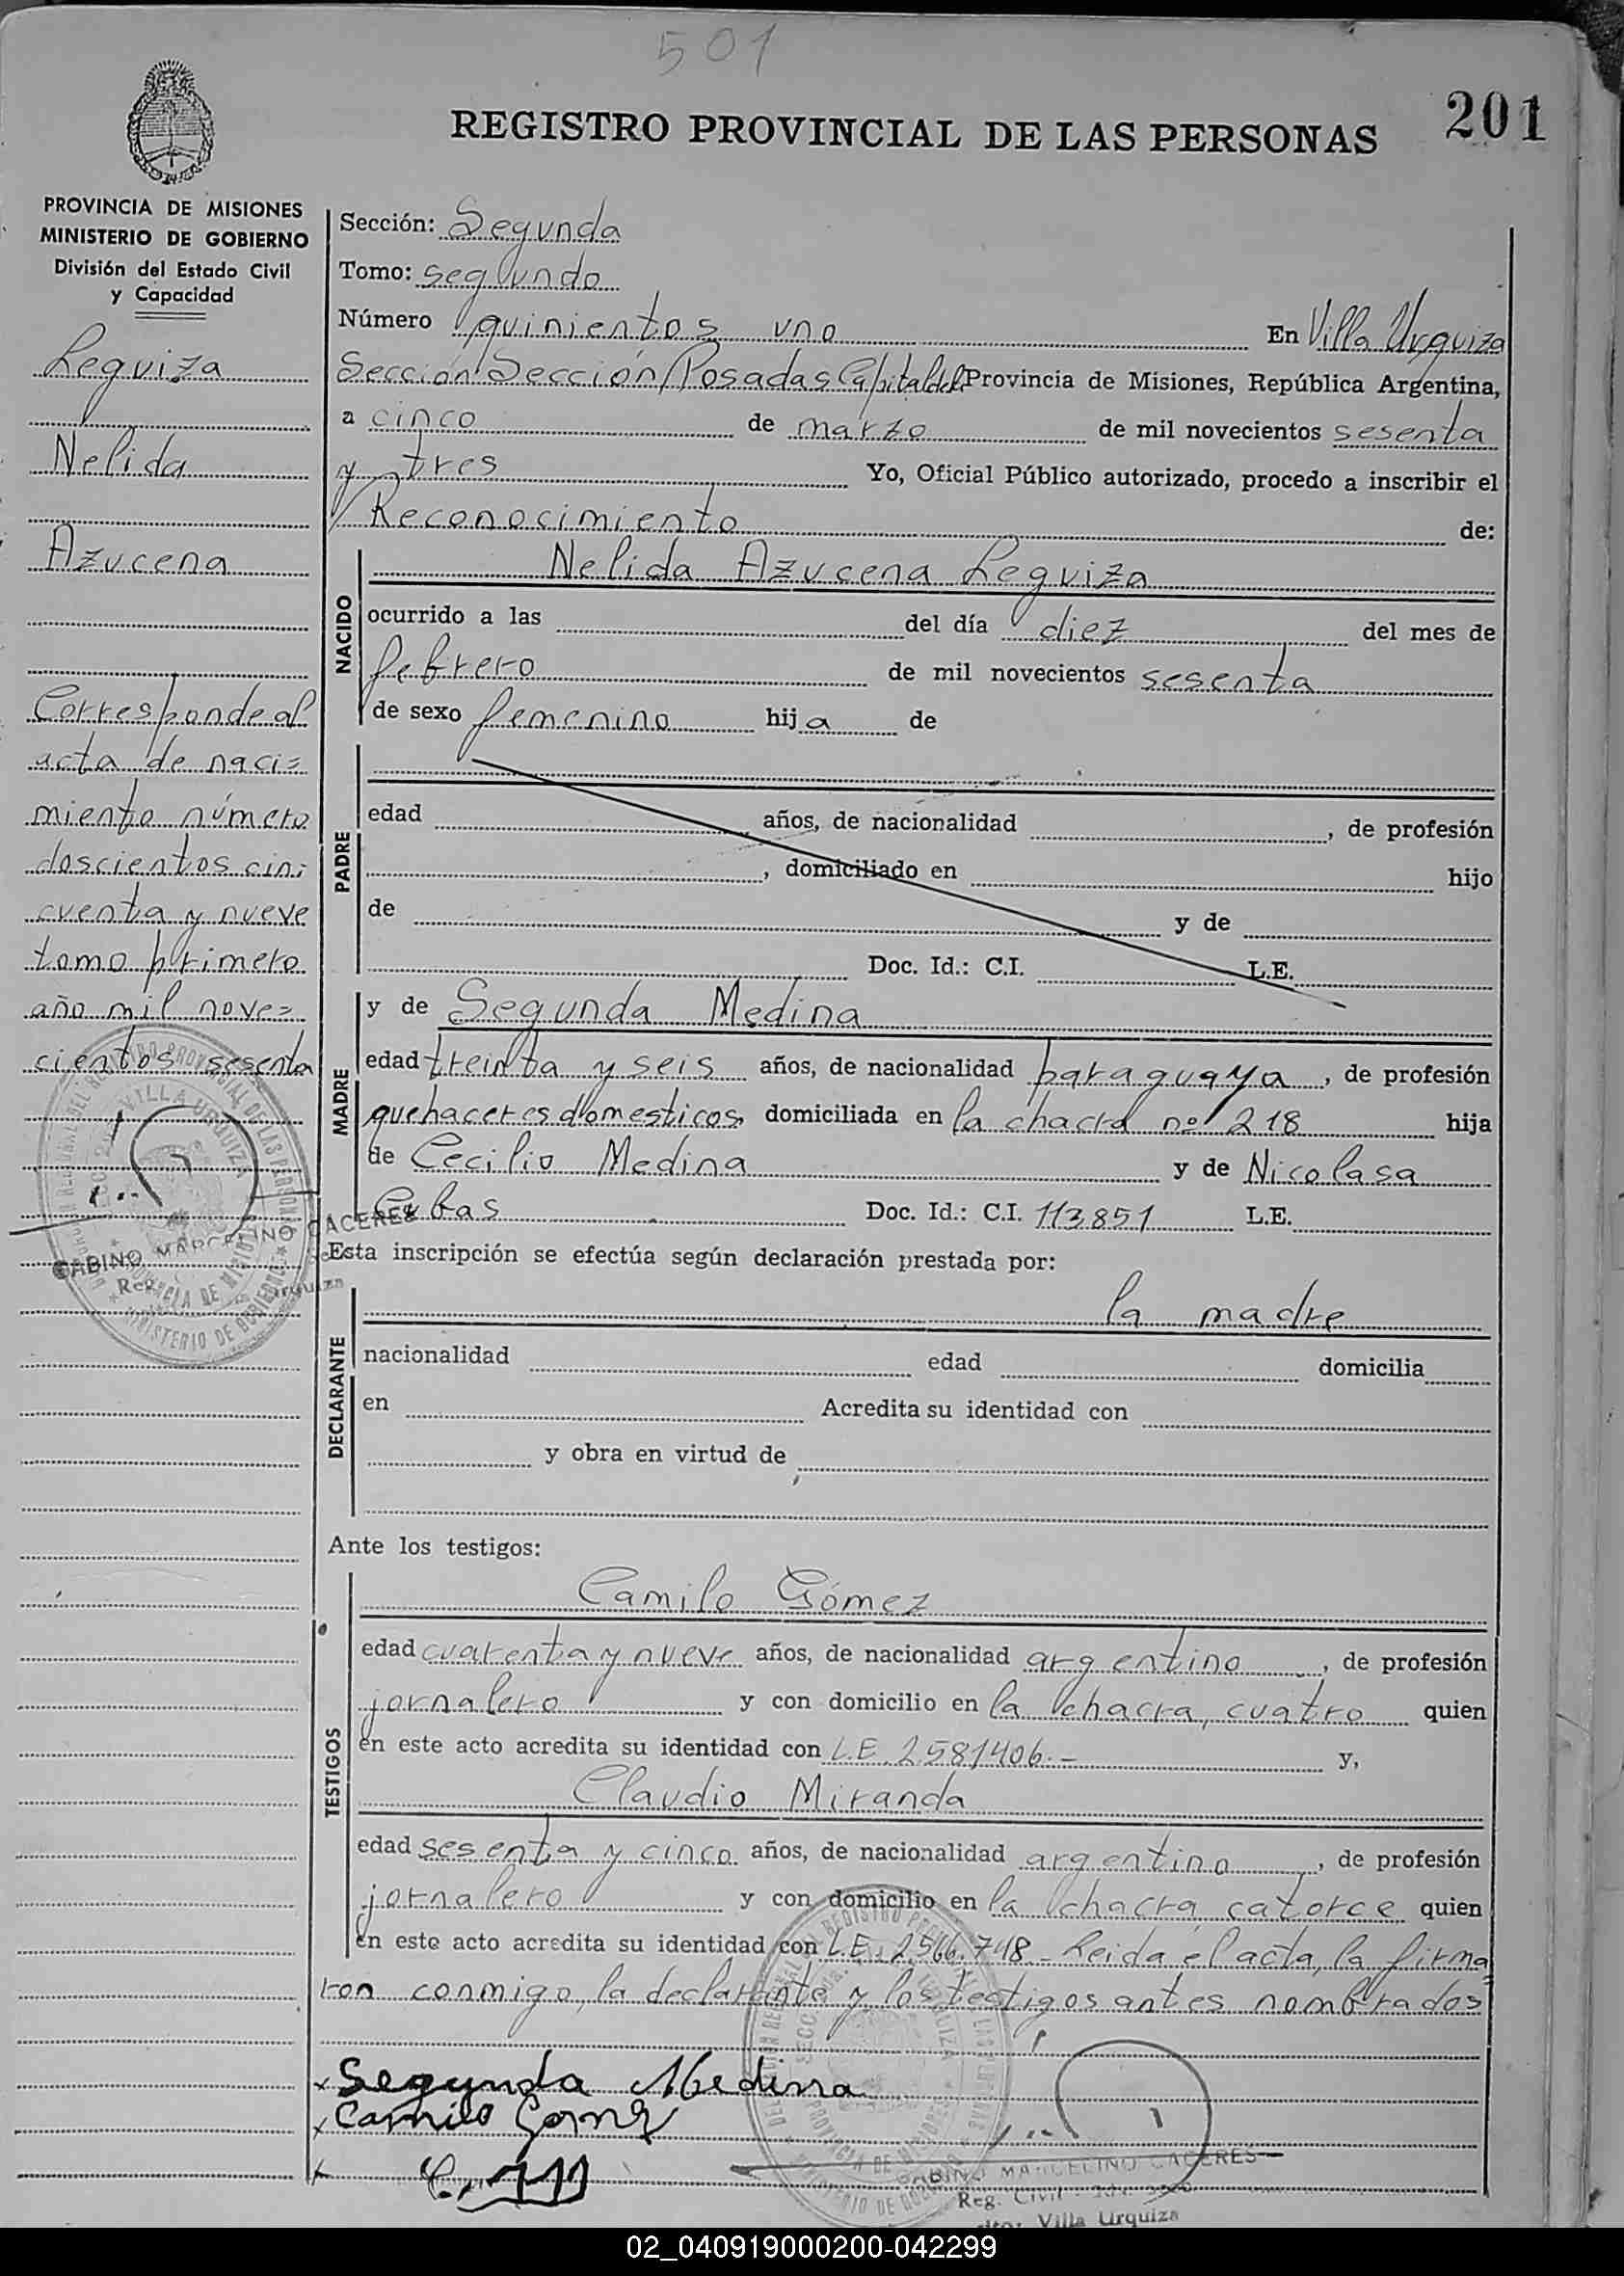 501
201
REGISTRO PROVINCIAL DE LAS PERSONAS
PROVINCIA DE MISIONES
MINISTERIO DE GOBIERNO
División del Estado Civil
y Capacidad
Leguiza
Nelida
Azucena
Corresponde al
acta de naci=
miento número
doscientos cin:
cuenta y nueve
tomo primero
año mil nove=
cientos sesenta
GABINO MARCELINO CACERES
Sección: Segunda
Tomo: segundo
Número quinientos uno En Villa Urquiza
Sección Sección Posadas Capital del Provincia de Misiones, República Argentina,
a cinco de marzo de mil novecientos sesenta
y tres Yo, Oficial Público autorizado, procedo a inscribir el
Reconocimiento de:
NACIDO
Nelida Azucena Leguiza
ocurrido a las del día diez del mes de
febrero de mil novecientos sesenta
de sexo femenino hija de
PADRE
edad años, de nacionalidad , de profesión
, domiciliado en hijo
de y de
Doc. Id.: C.I. L.E.
MADRE
y de Segunda Medina
edad treinta y seis años, de nacionalidad paraguaya, de profesión
quehaceres domesticos, domiciliada en la chacra nº 218 hija
de Cecilio Medina y de Nicolasa
Cubas Doc. Id.: C.I. 113851 L.E.
Esta inscripción se efectúa según declaración prestada por:
DECLARANTE
la madre
nacionalidad edad domicilia
en Acredita su identidad con
y obra en virtud de
Ante los testigos:
TESTIGOS
Camilo Gómez
edad cuarenta y nueve años, de nacionalidad argentino, de profesión
jornalero y con domicilio en la chacra, cuatro quien
en este acto acredita su identidad con L.E. 2581406.- y,
Claudio Miranda
edad sesenta y cinco años, de nacionalidad argentino, de profesión
jornalero y con domicilio en la chacra catorce quien
en este acto acredita su identidad con L.E. 2566.748- Leida el acta, la firma=
ron conmigo, la declarante y los testigos antes nombrados
x Segunda Medina
x Camilo Gomez
x
GABINO MARCELINO CACERES
Reg. Civil
Villa Urquiza
02_040919000200-042299